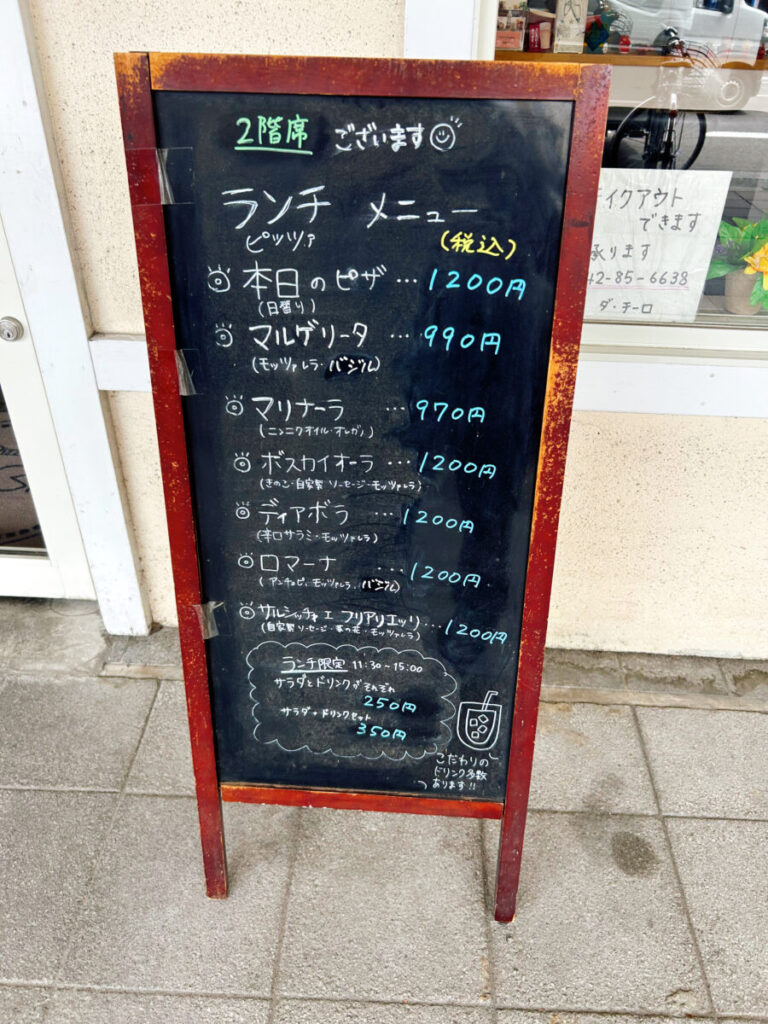 2階席 ございます
ランチ メニュー
ピッツァ
(税込)
本日のピザ…1200円
(日替り)
マルゲリータ…990円
(モッツァレラ・バジル)
マリナーラ…970円
(ニンニクオイル・オレガノ)
ボスカイオーラ…1200円
(きのこ・自家製ソーセージ・モッツァレラ)
ディアボラ…1200円
(辛口サラミ・モッツァレラ)
ロマーナ…1200円
(アンチョビ・モッツァレラ・バジル)
サルシッチャ エ フリアリエッリ…1200円
(自家製ソーセージ・菜の花・モッツァレラ)
ランチ限定 11:30~15:00
サラダとドリンクがそれぞれ
250円
サラダ+ドリンクセット
350円
こだわりの
ドリンク多数
あります!!
イクアウト
できます
承ります
42-85-6638
ダ・チーロ